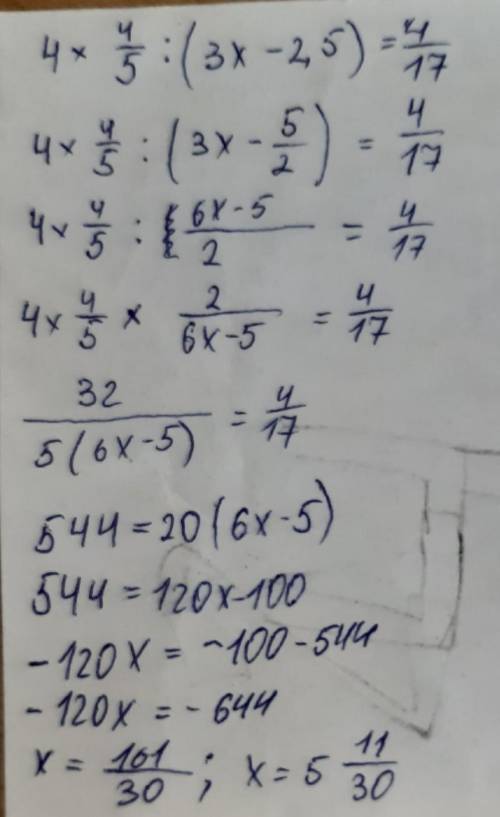 4 × 4/5 : (3x - 2,5) = 4/17
4 × 4/5 : (3x - 5/2) = 4/17
4 × 4/5 : (6x-5)/2 = 4/17
4 × 4/5 × 2/(6x-5) = 4/17
32/(5(6x-5)) = 4/17
544 = 20(6x-5)
544 = 120x-100
-120x = -100-544
-120x = -644
x = 161/30 ; x = 5 11/30